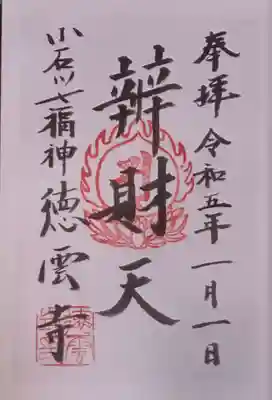 奉拝 令和五年一月一日
辨財天
小石川七福神 徳雲寺